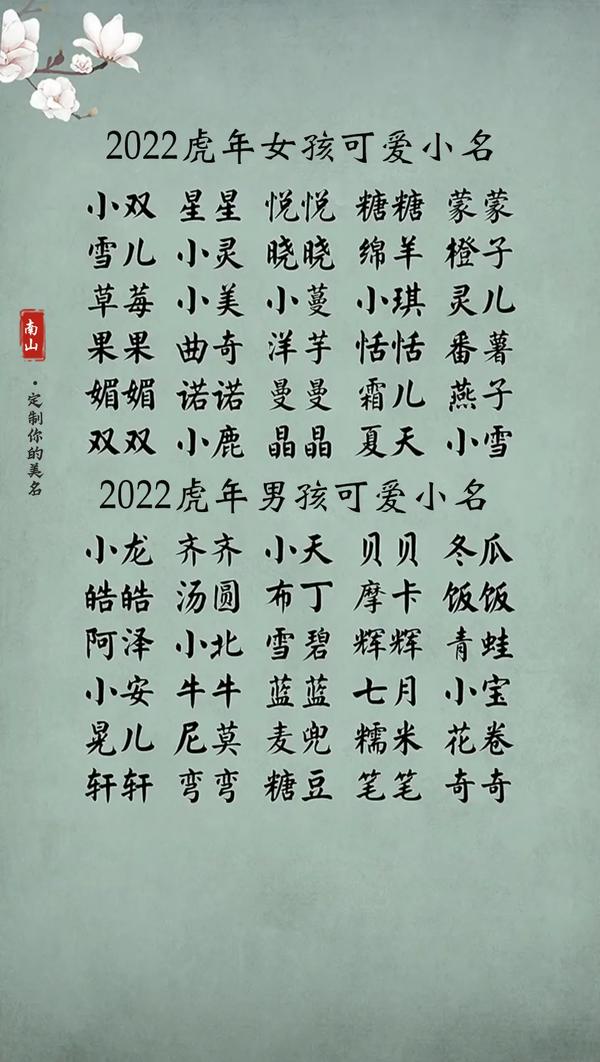 2022虎年女孩可爱小名
小双 星星 悦悦 糖糖 蒙蒙
雪儿 小灵 晓晓 绵羊 橙子
草莓 小美 小蔓 小琪 灵儿
果果 曲奇 洋芋 恬恬 番薯
媚媚 诺诺 曼曼 霜儿 燕子
双双 小鹿 晶晶 夏天 小雪
2022虎年男孩可爱小名
小龙 齐齐 小天 贝贝 冬瓜
皓皓 汤圆 布丁 摩卡 饭饭
阿泽 小北 雪碧 辉辉 青蛙
小安 牛牛 蓝蓝 七月 小宝
晃儿 尼莫 麦兜 糯米 花卷
轩轩 弯弯 糖豆 笔笔 奇奇
南山
·定制你的美名